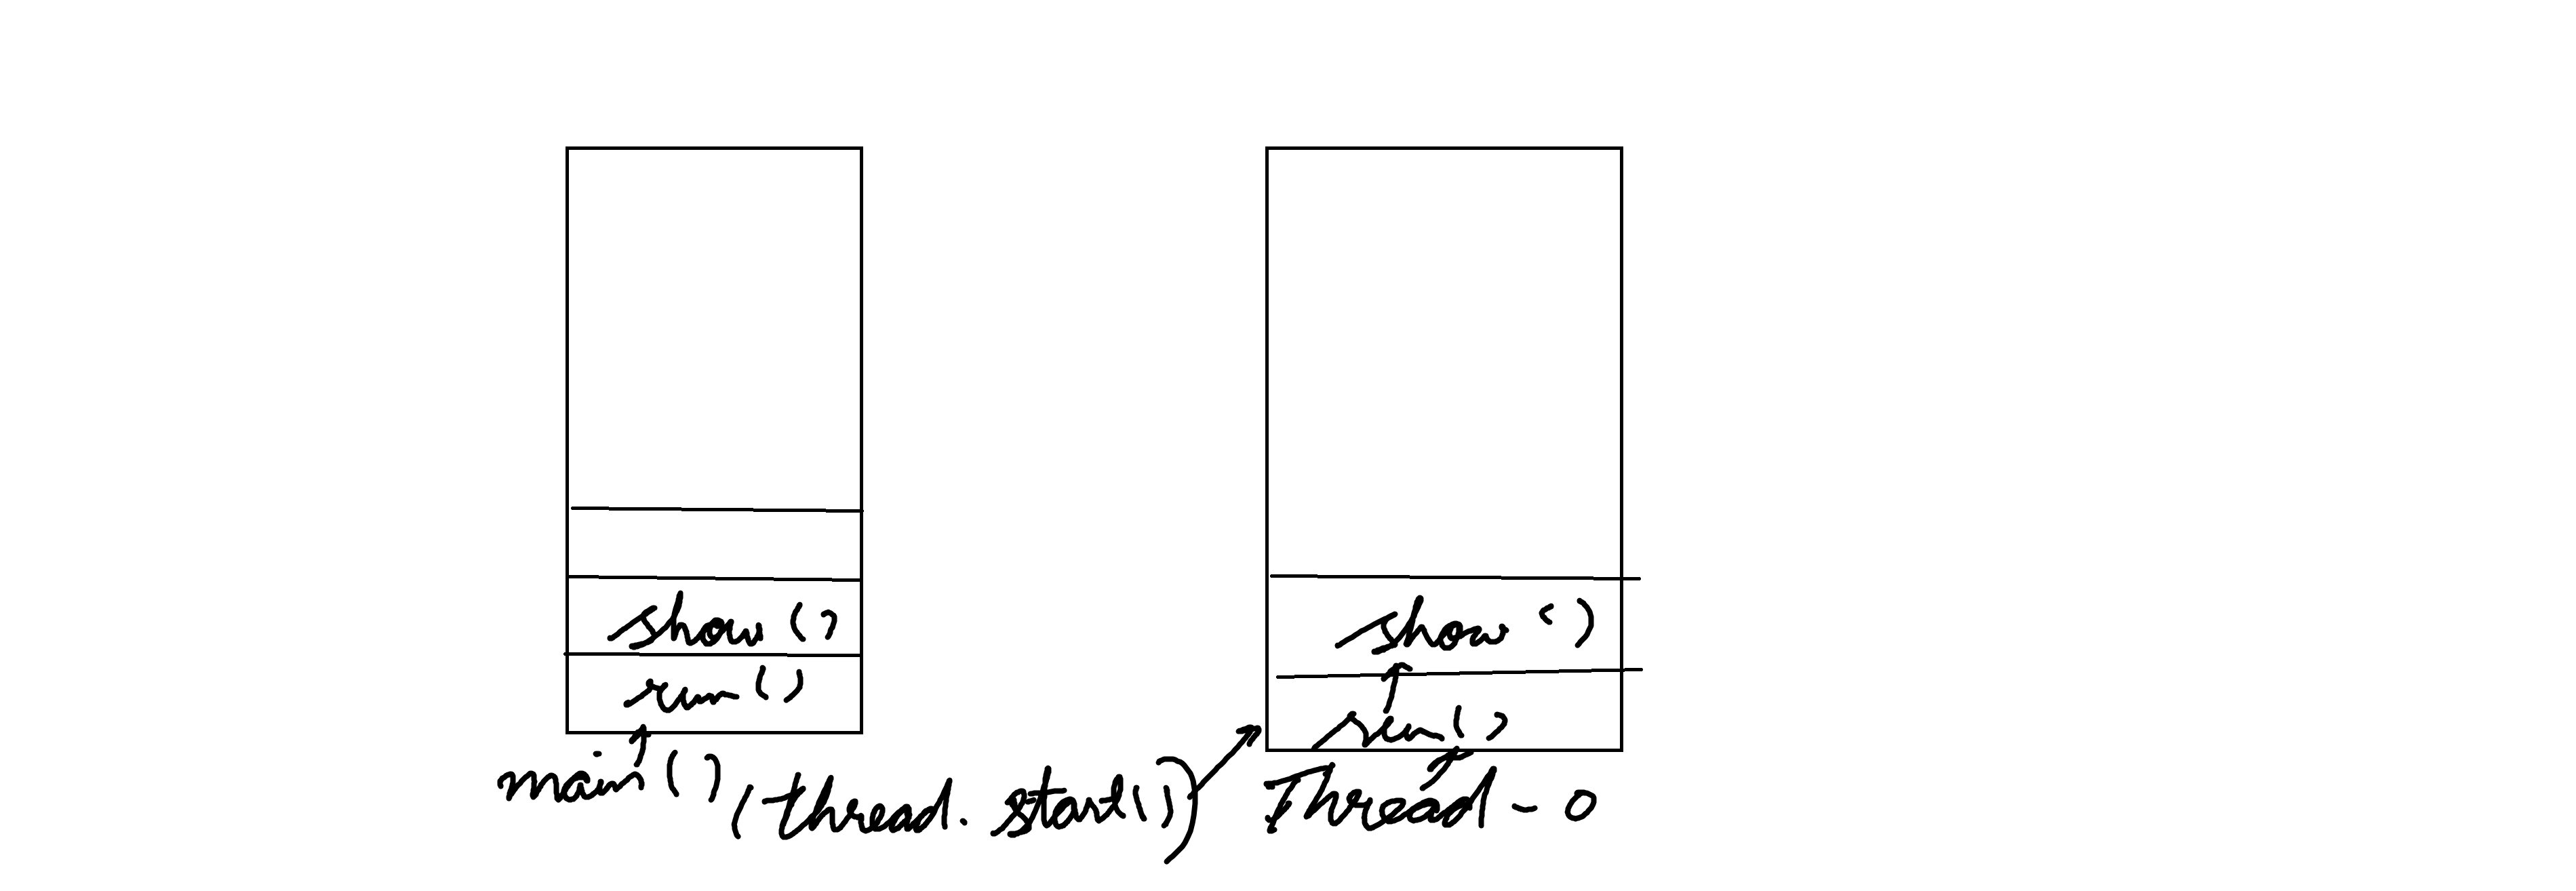 show()
run()
main() (thread.start())
show()
run()
Thread-0